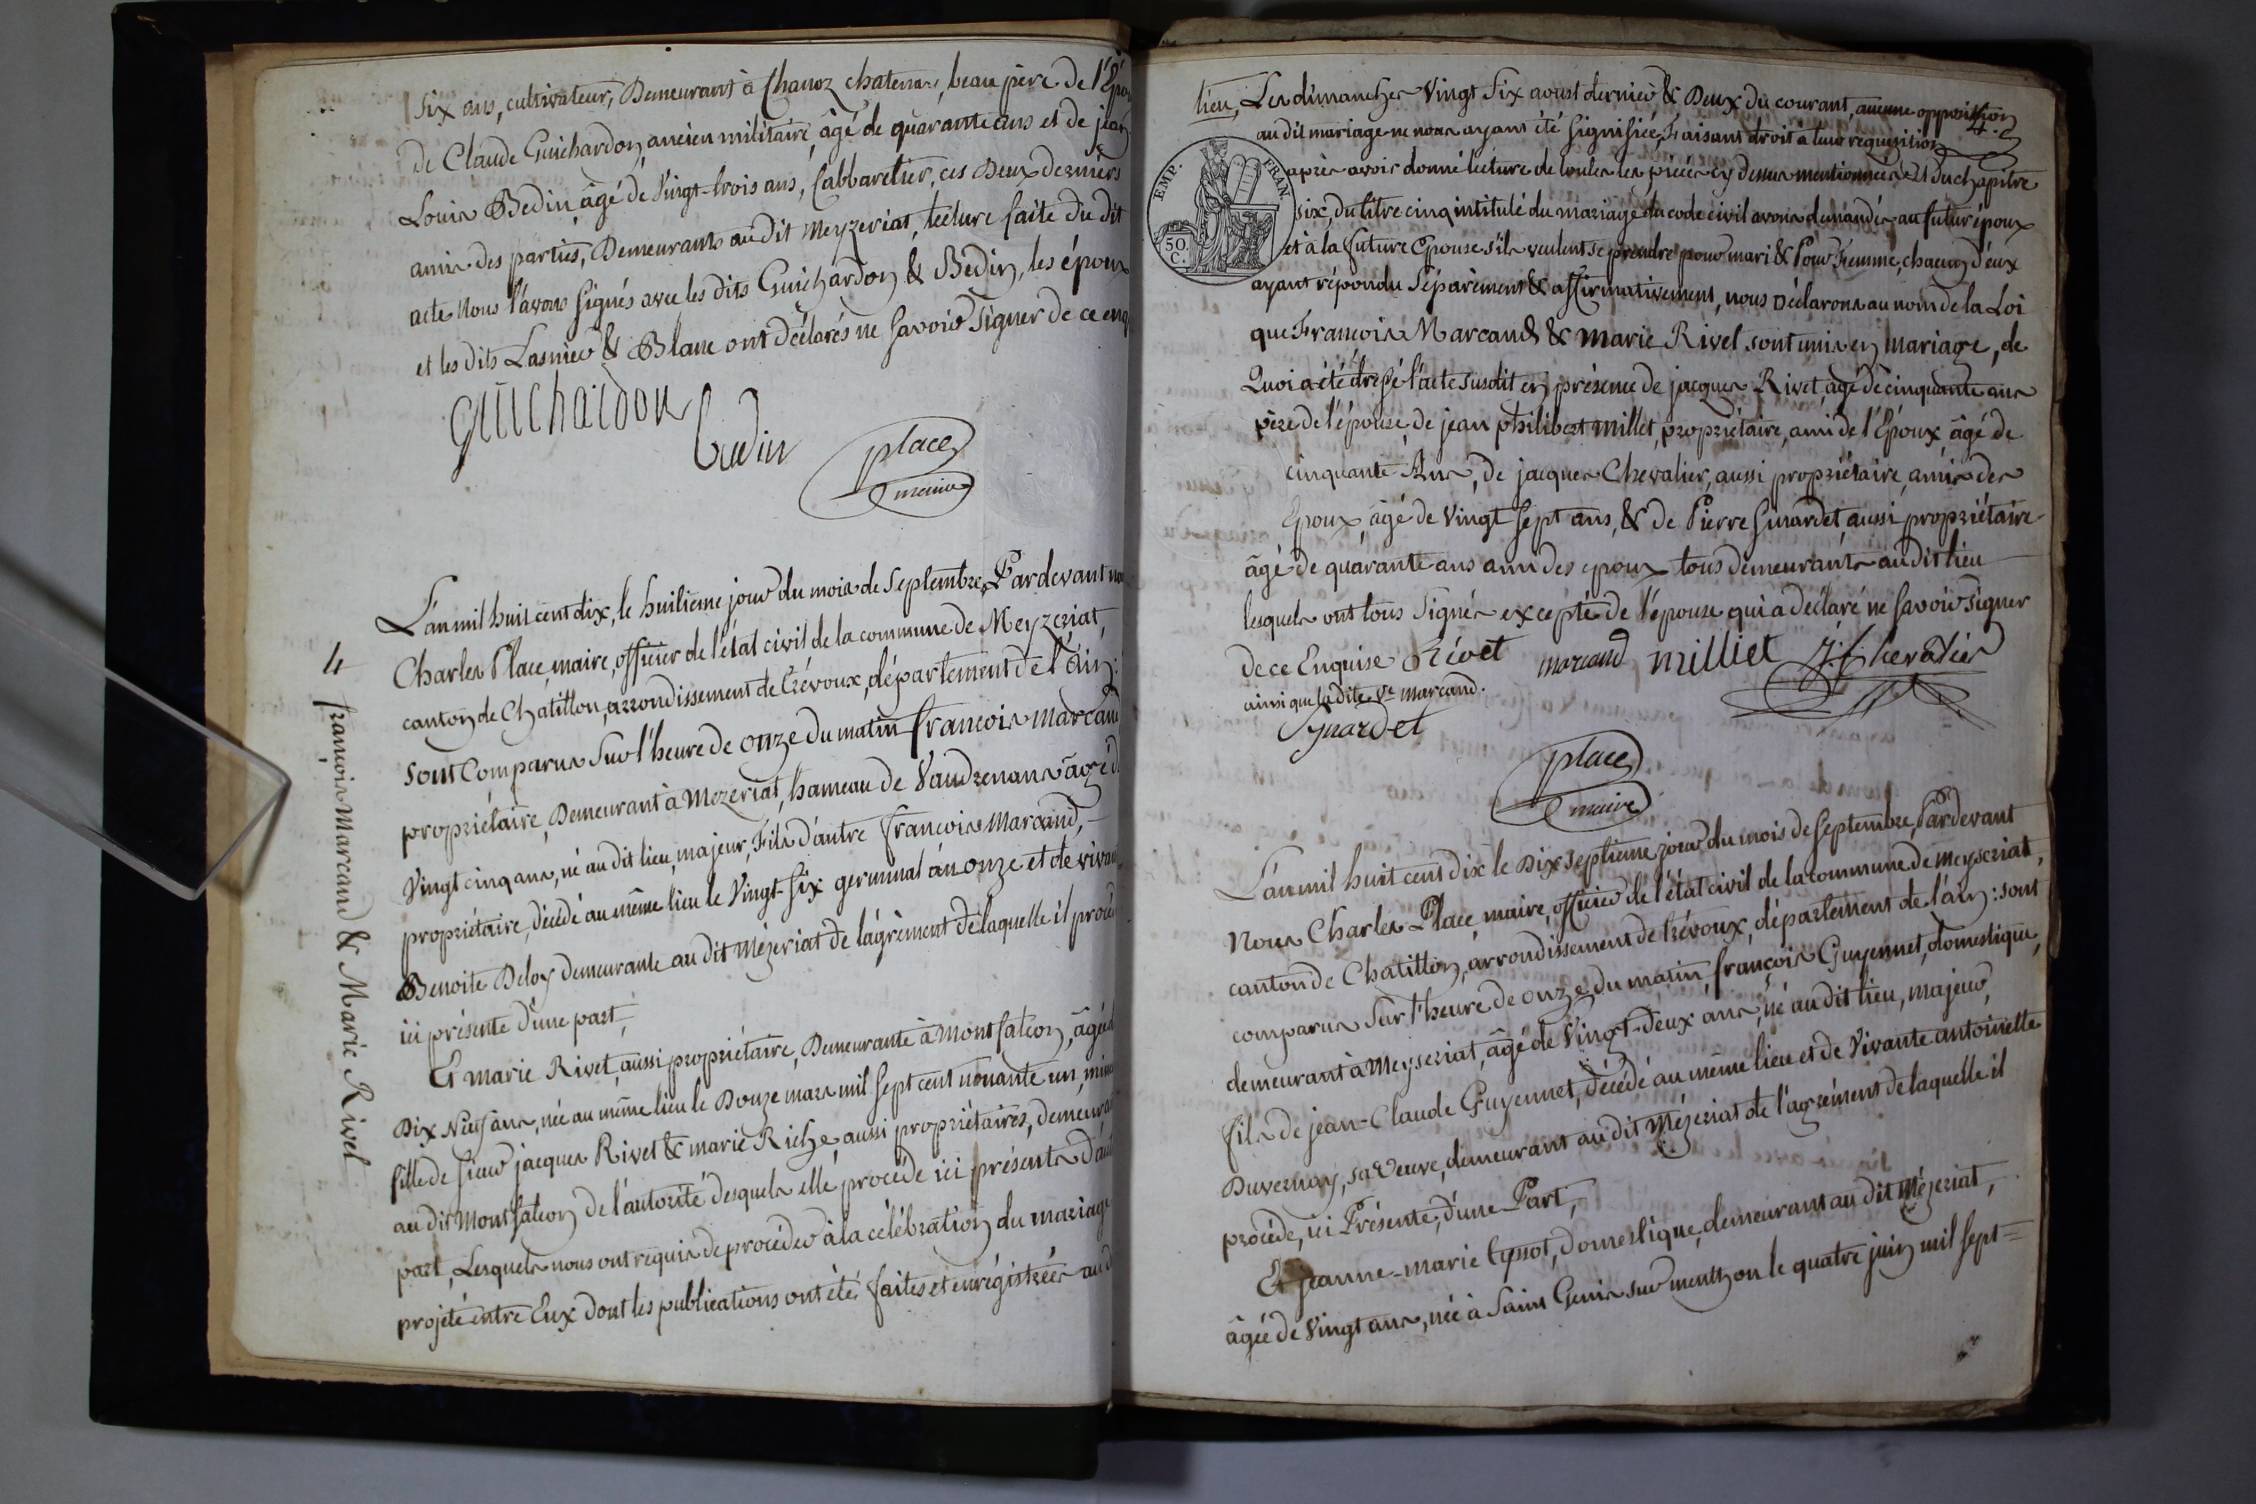 Six ans, cultivateur, Demeurant à Chanoz chatenai, beau père de l'Epou
de Claude Guichardon ancien militaire, âgé de quarante ans et de jean
Louis Bedin, âgé de Vingt-trois ans, Cabbaretier, ces Deux derniers
amis des parties, Demeurants audit Meyzeriat, lecture faite du dit
acte Nous l'avons Signés avec les dits Guichardon & Bedin, les époux
et les dits Lasnier & Blanc ont déclarés ne Savoir Signer de ce enq
Guichardon
Bedin
place
maire
4
françois Marcand & Marie Rivet
L'an mil huit cent dix, le huitieme jour du mois de Septembre, Pardevant no
Charles Place, maire, officier de l'état civil de la commune de Meyzeriat,
canton de Chatillon, arrondissement de Trévoux, département de l'ain :
sont Comparus Sur l'heure de onze du matin francois Marcand
propriétaire, Demeurant à Mezeriat, hameau de Vaudrenans âgé d
Vingt cinq ans, né au dit lieu, majeur, Fils d'autre francois Marcand,
propriétaire, décédé au même lieu le Vingt-Six germinal an onze et de vivan
Benoite Deloy demeurante au dit Mézeriat de l'agrément de laquelle il procè
ici présente d'une part,
Et marie Rivet, aussi propriétaire, Demeurante à Montfalcon, âgée d
Dix Neuf ans, née au même lieu le Douze mars mil sept cent nonante un, min
fille de Sieur jacques Rivet & marie Riche aussi propriétaires, demeuran
au dit Montfalcon de l'autorité desquels elle procéde ici présents d'au
part, Lesquels nous ont requis de procéder à la célébration du mariage
projeté entre Eux dont les publications ont été faites et enrégistrées au d
lieu, Les dimanches Vingt Six aoust dernier & Deux du courant, aucune opposition
au dit mariage ne nous ayant été Signifiée, Faisant droit à leur réquisition
EMP. FRAN.
50. C.
après avoir donné lecture de toutes les pièces cy dessus mentionnées Et du chapitre
six, du titre cinq intitulé du mariage du code civil avons demandés au futur époux
et à la future Epouse s'ils veulent se prendre pour mari & Pour Femme, chacun d'eux
ayant répondu Séparément & affirmativement, nous Déclarons au nom de la Loi
que Francois Marcand & Marie Rivet sont unis en Mariage, de
Quoi a été dressé l'acte susdit en présence de jacques Rivet âgé de cinquante ans
père de l'épouse, de jean philibert millet, propriétaire, ami de l'Époux âgé de
cinquante Ans, de jacques Chevalier, aussi propriétaire, ami des
Epoux, âgé de Vingt Sept ans, & de Pierre Guardet, aussi propriétaire
âgé de quarante ans ami des epoux tous demeurants au dit lieu
lesquels ont tous Signés excepté de l'épouse qui a déclaré ne Savoir Signer
de ce Enquise Rivet marcand milliet J. Chevalier
ainsi que la dite Ve Marcand.
Guardet
place
maire
L'an mil huit cent dix le Dix septieme jour du mois de Septembre, Pardevant
Nous Charles Place, maire, officier de l'état civil de la commune de meyseriat,
canton de Chatillon, arrondissement de Trévoux, département de l'ain : sont
comparus Sur l'heure de onze du matin françois Guyennet, domestique,
demeurant à Meyseriat, âgé de Vingt-Deux ans, né au dit lieu, majeur,
fils de jean-Claude Guyennet, décédé au même lieu et de Vivante antoinette
Duvernay, sa Veuve, demeurant au dit Mézeriat de l'agrément de laquelle il
procède, ici Présente, d'une Part,
Et jeanne-marie Tyssot, domestique, demeurant au dit Mézeriat,
âgée de Vingt ans, née à Saint Genis sur menthon le quatre juin mil sept=